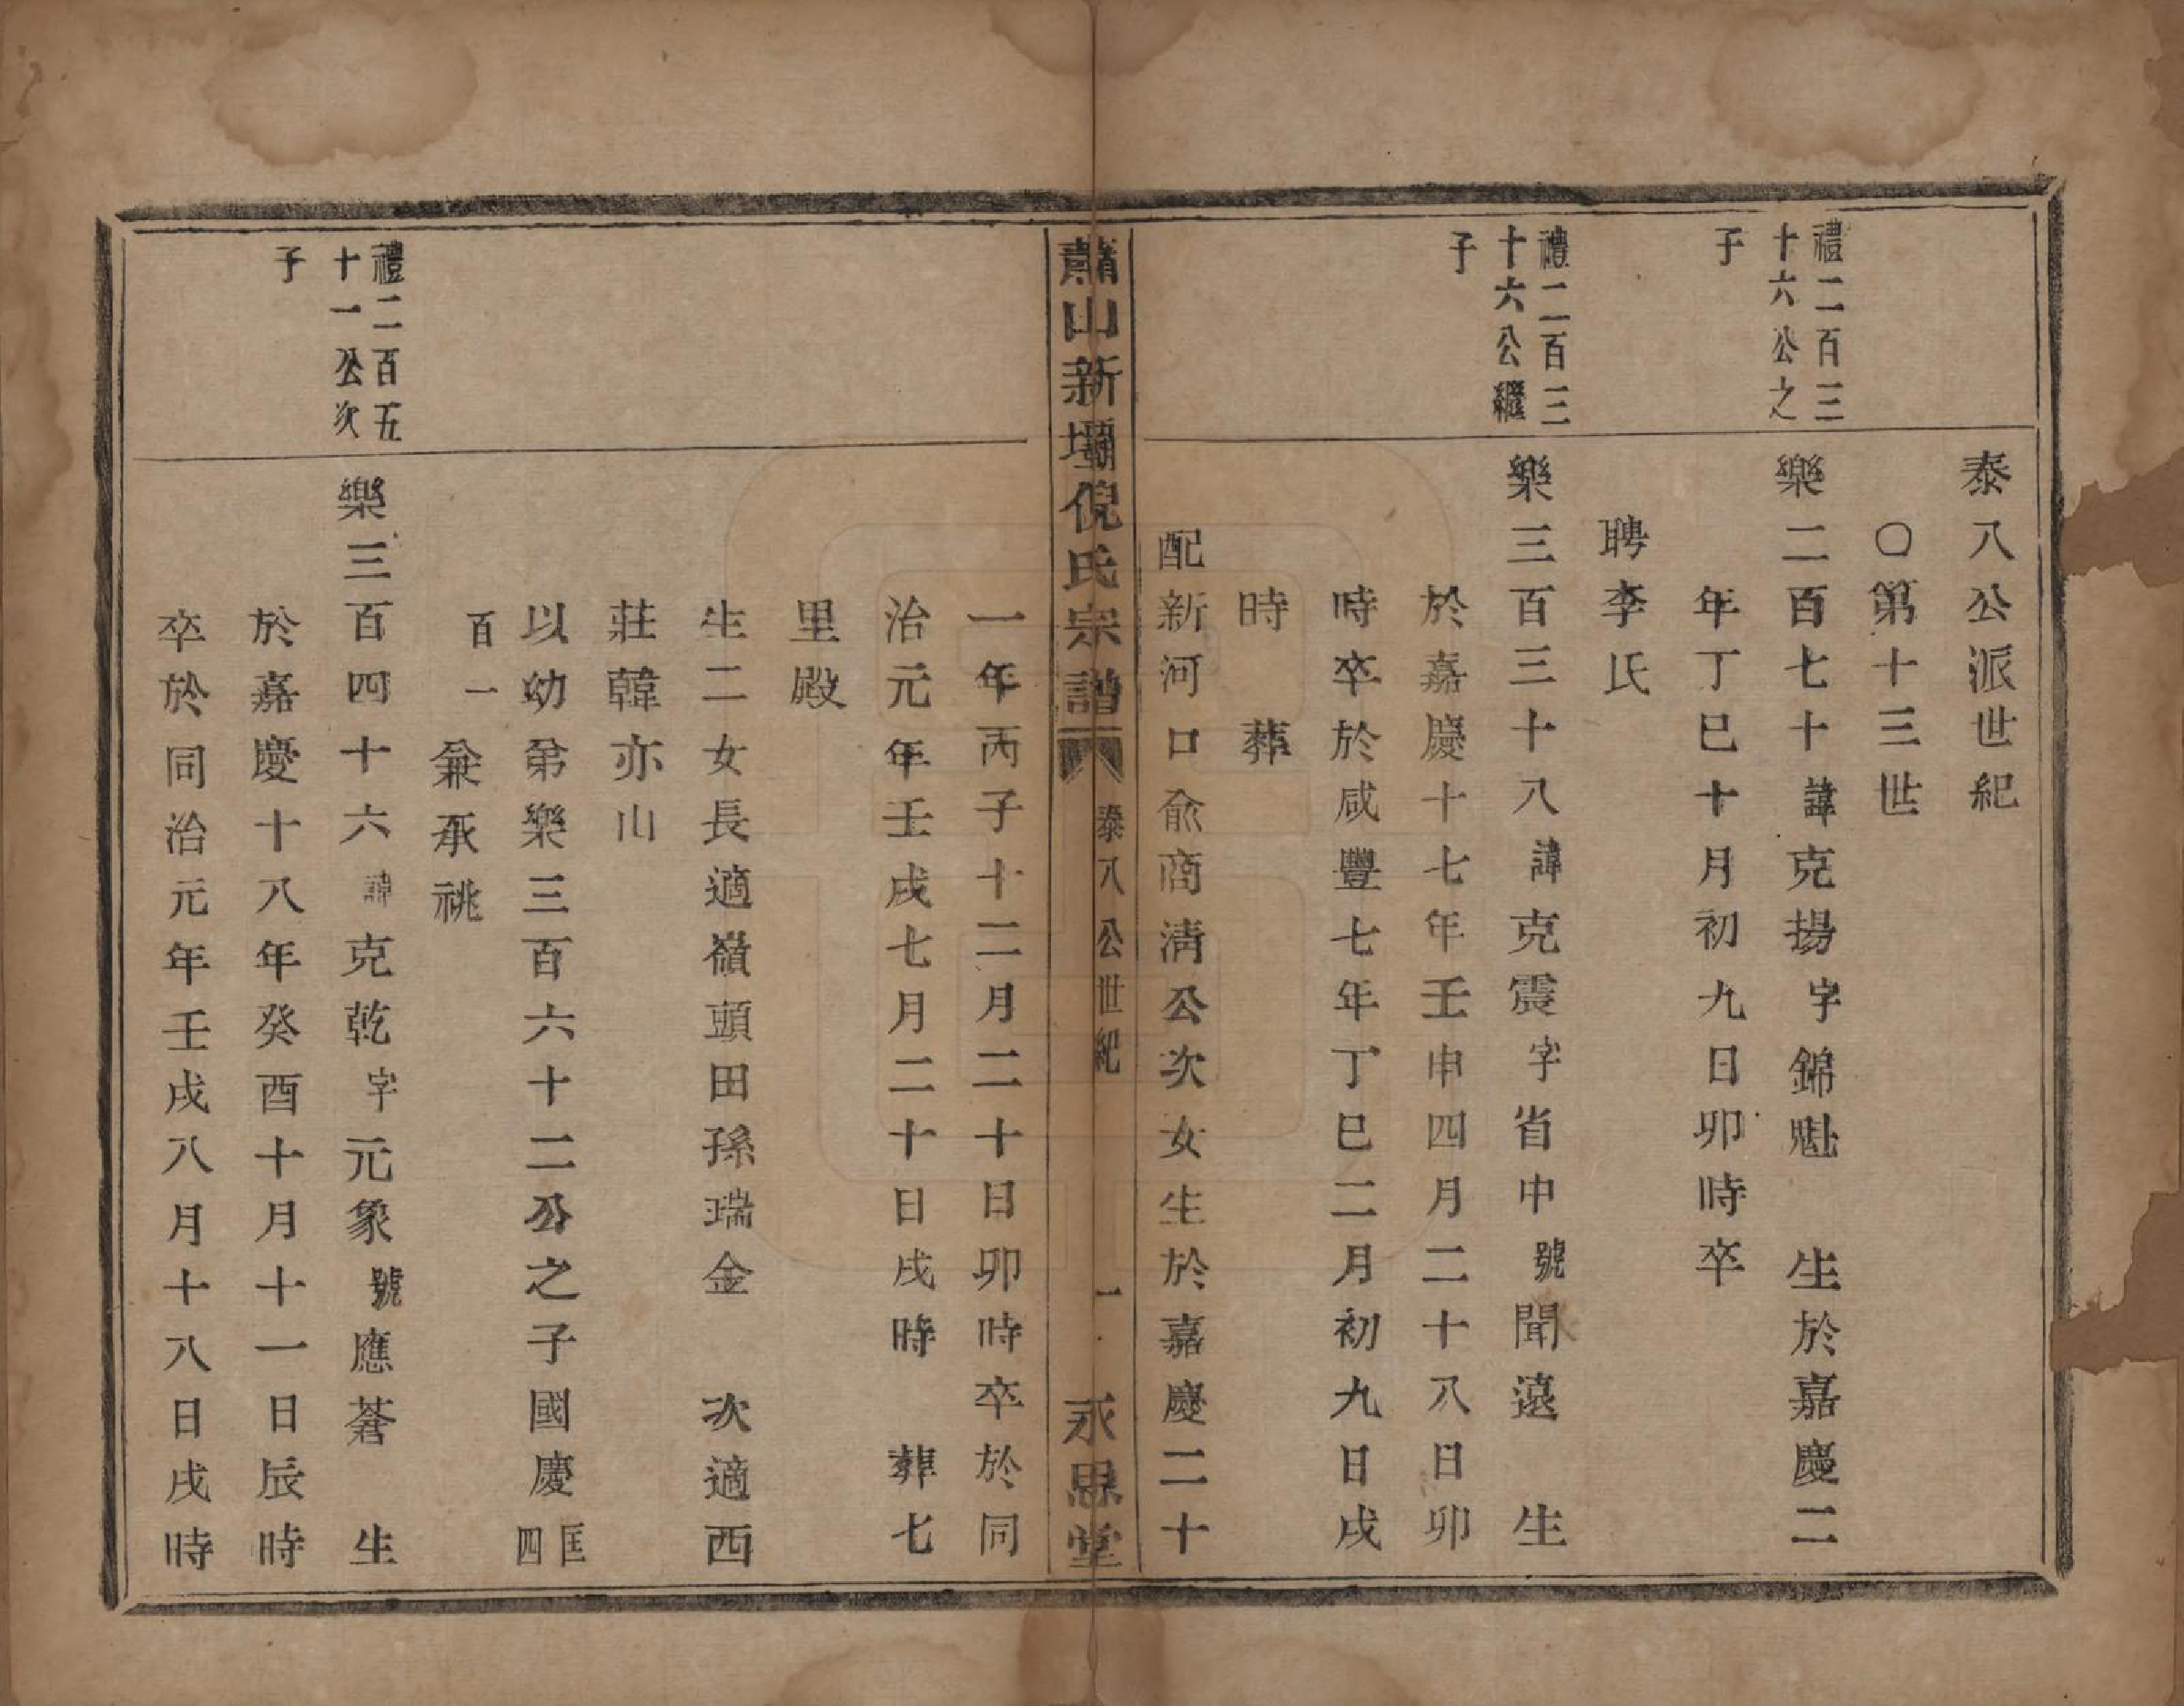 泰八公派世紀
○第十三世
禮二百三
十六公之
子
樂二百七十諱克揚字錦魁　生於嘉慶二
年丁巳十月初九日卯時卒
聘李氏
禮二百三
十六公繼
子
樂三百三十八諱克震字省中號聞遠　生
於嘉慶十七年壬申四月二十八日卯
時卒於咸豐七年丁巳二月初九日戌
時　葬
配新河口俞商淸公次女生於嘉慶二十
蕭山新壩倪氏宗譜　泰八公世紀　一　永思堂
一年丙子十二月二十日卯時卒於同
治元年壬戌七月二十日戌時　葬七
里殿
生二女長適嶺頭田孫瑞金　次適西
莊韓亦山
以幼弟樂三百六十二公之子國慶匡四
百一兼承祧
禮二百五
十一公次
子
樂三百四十六諱克乾字元象號應蒼　生
於嘉慶十八年癸酉十月十一日辰時
卒於同治元年壬戌八月十八日戌時